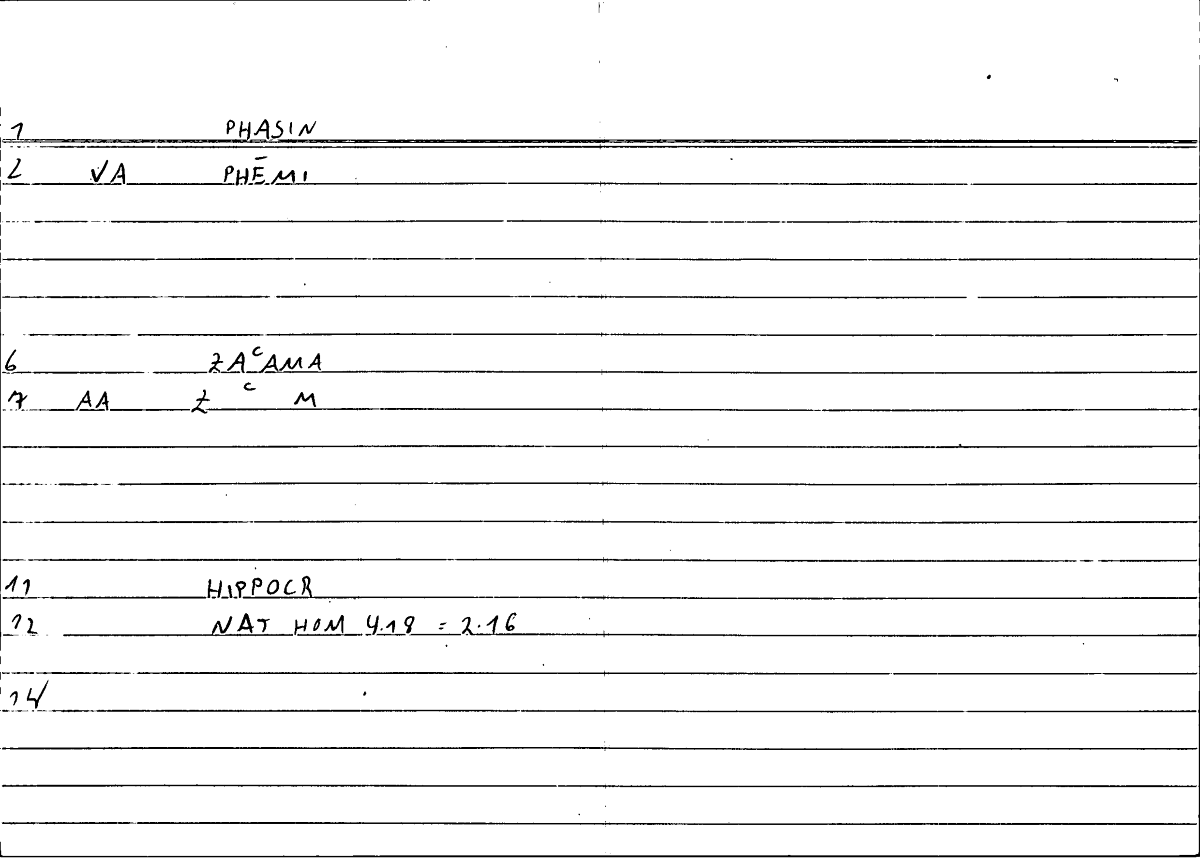 1 PHASIN
2 VA PHĒMI
6 ZAᶜAMA
7 AA Z ᶜ M
11 HIPPOCR
12 NAT HOM 4.18 = 2.16
14